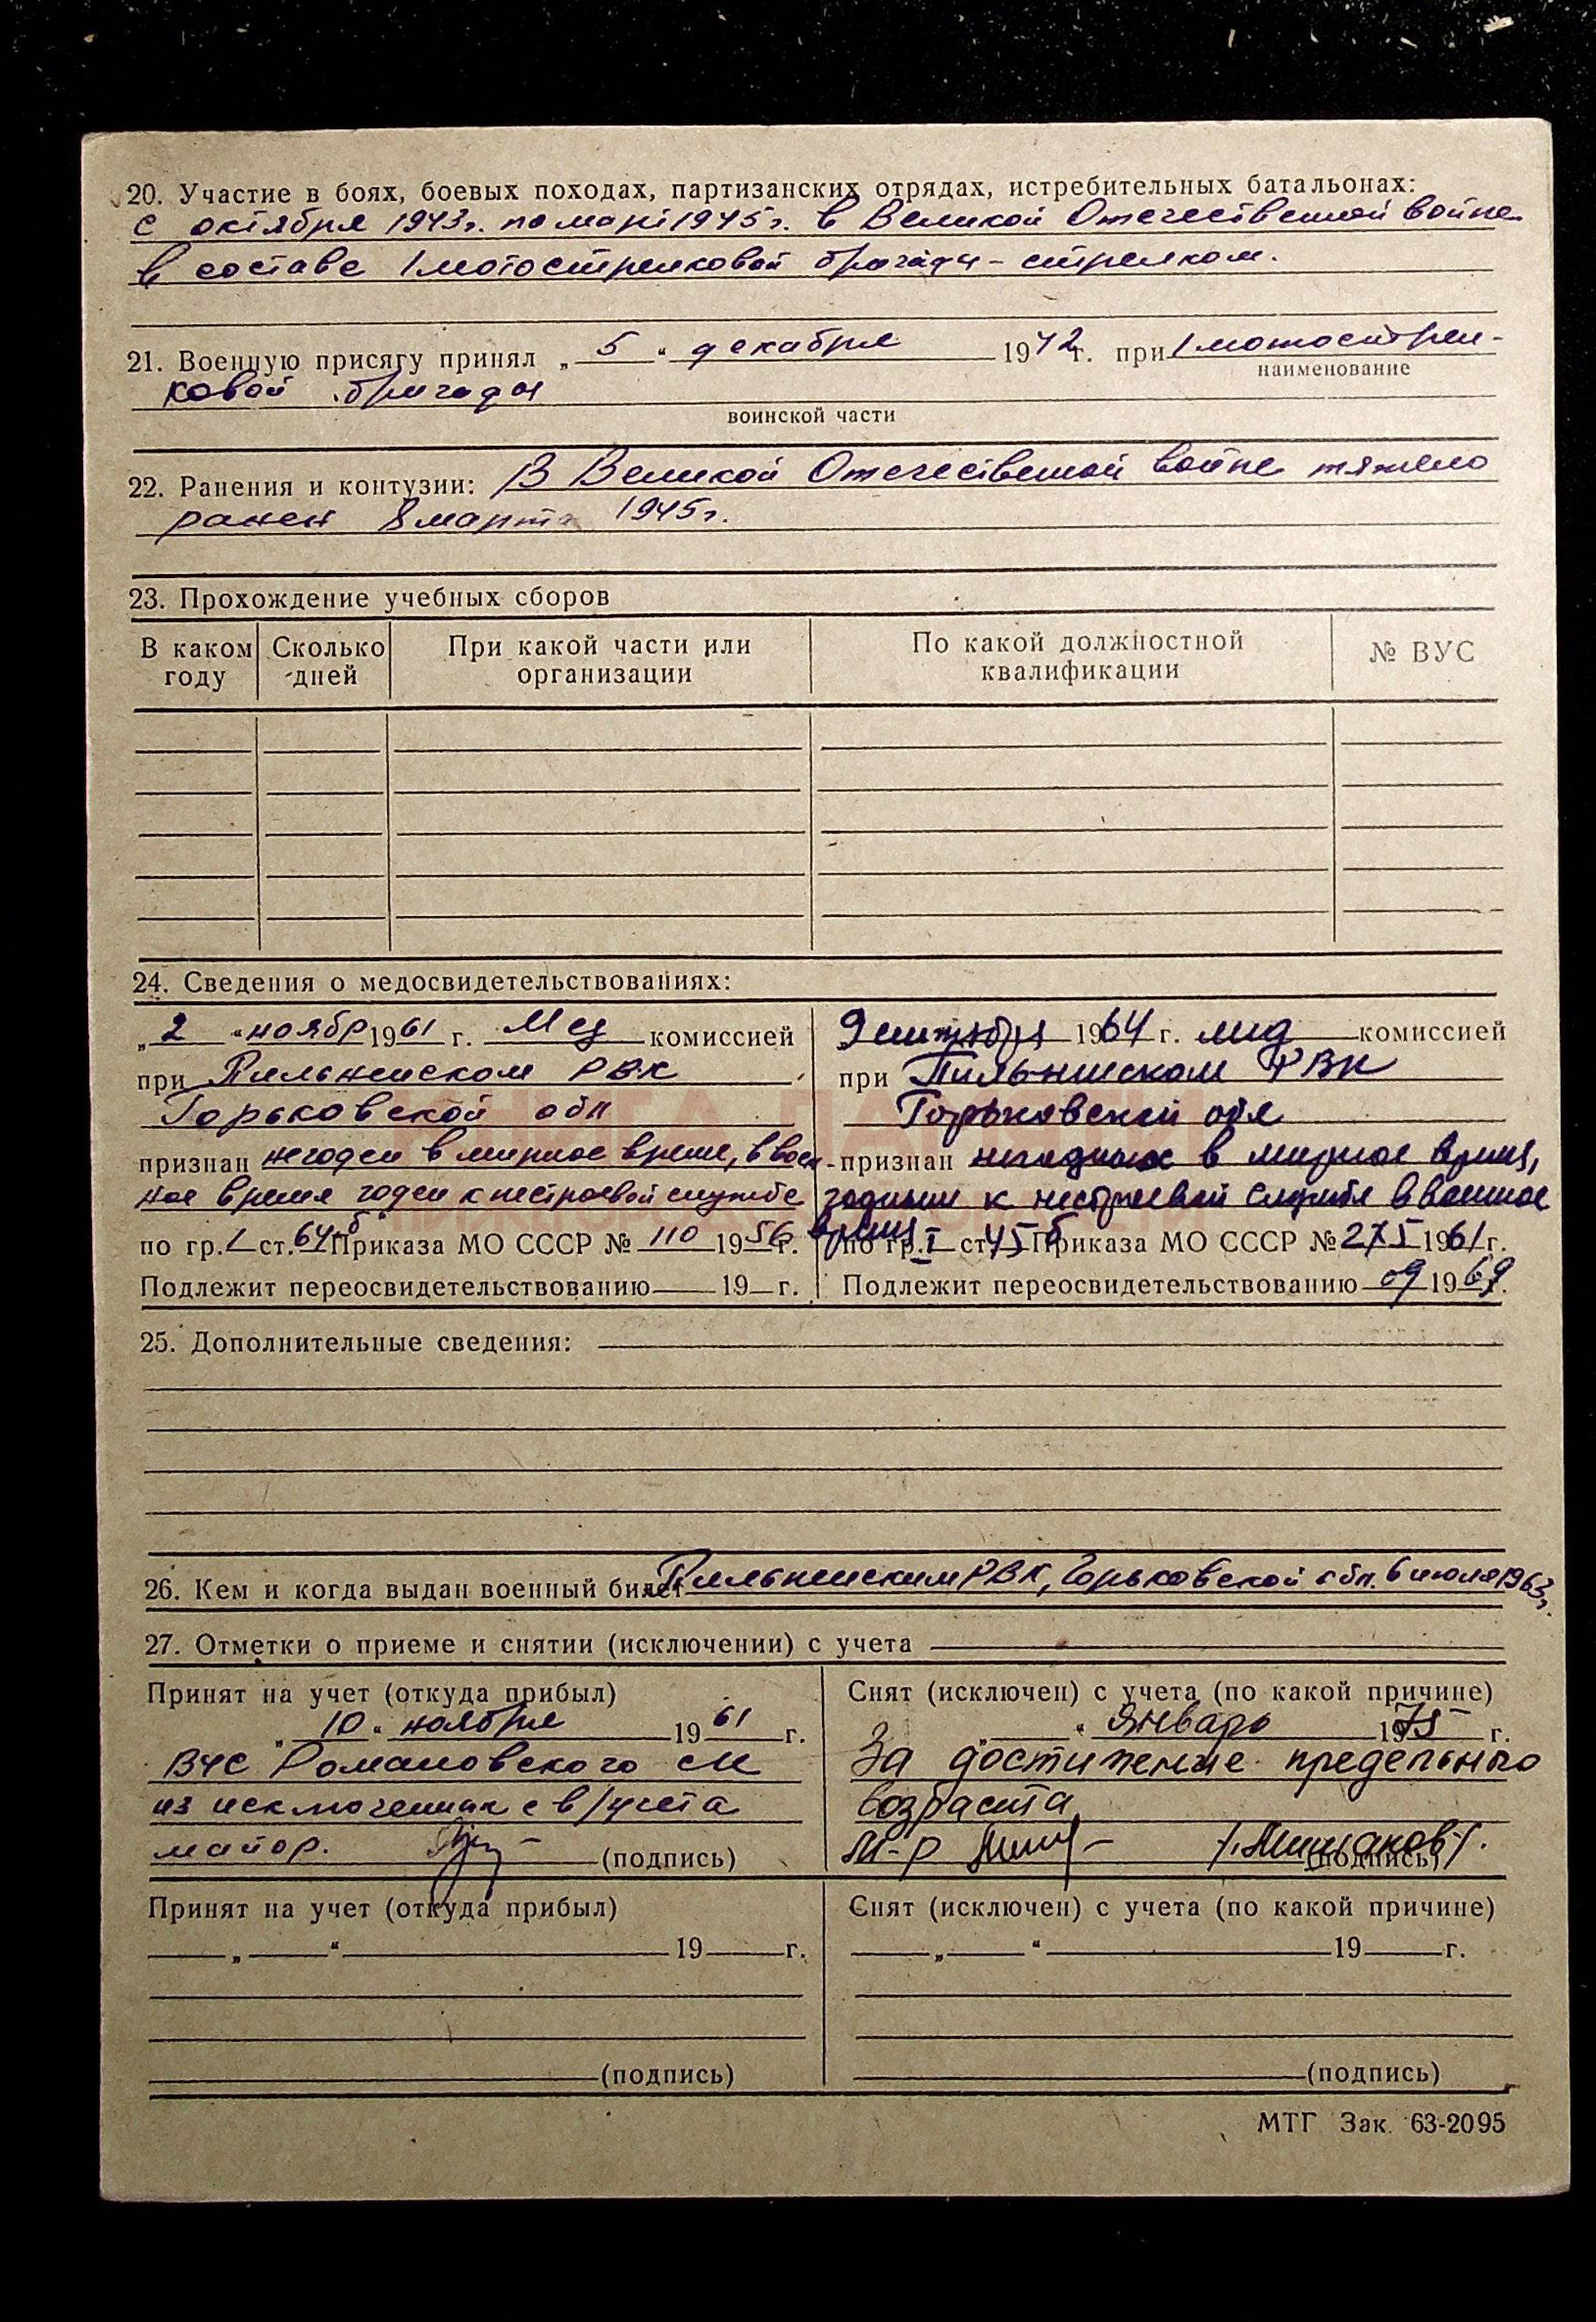 20. Участие в боях, боевых походах, партизанских отрядах, истребительных батальонах:
с октября 1943г. по март 1945г. в Великой Отечественной войне
в составе 1 мотострелковой бригады - стрелком.
21. Военную присягу принял „5“ декабря 1942г. при 1 мотострел-
наименование
ковой бригады
воинской части
22. Ранения и контузии: В Великой Отечественной войне тяжело
ранен 8 марта 1945г.
23. Прохождение учебных сборов
В каком году Сколько дней При какой части или организации По какой должностной квалификации № ВУС
24. Сведения о медосвидетельствованиях:
„2“ ноябр 1961 г. Мед комиссией
при Пильненском РВК
Горьковской обл
признан негоден в мирное время, в воен-
ное время годен к нестроевой службе
по гр. I ст. 64 б Приказа МО СССР № 110 1956 г.
Подлежит переосвидетельствованию 19 г.
9 сентября 1964 г. мед комиссией
при Пильнинском РВК
Горьковской обл
признан негодным в мирное время,
годным к нестроевой службе в военное
время
по гр. I ст 45 б Приказа МО СССР № 275 1961 г.
Подлежит переосвидетельствованию 09 1969г.
25. Дополнительные сведения:
26. Кем и когда выдан военный билет Пильненским РВК, Горьковской обл. 6 июля 1963г.
27. Отметки о приеме и снятии (исключении) с учета
Принят на учет (откуда прибыл)
„10“ ноября 1961 г.
ВУС Романовского с/с
из исключенных с в/учета
майор. (подпись)
Снят (исключен) с учета (по какой причине)
„ “ Январь 1975 г.
За достижение предельного
возраста
М-р /Мишаков/.
(подпись)
Принят на учет (откуда прибыл)
„ “ 19 г.
(подпись)
Снят (исключен) с учета (по какой причине)
„ “ 19 г.
(подпись)
МТГ Зак. 63-2095
КНИГА ПАМЯТИ